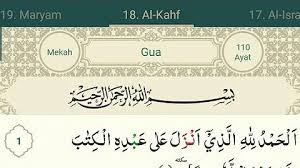 19. Maryam 18. Al-Kahf 17. Al-Isra
Mekah Gua 110 Ayat
بِسْمِ اللّٰهِ الرَّحْمٰنِ الرَّحِيْمِ
1 اَلْحَمْدُ لِلّٰهِ الَّذِيْٓ اَنْزَلَ عَلٰى عَبْدِهِ الْكِتٰبَ
سكتة